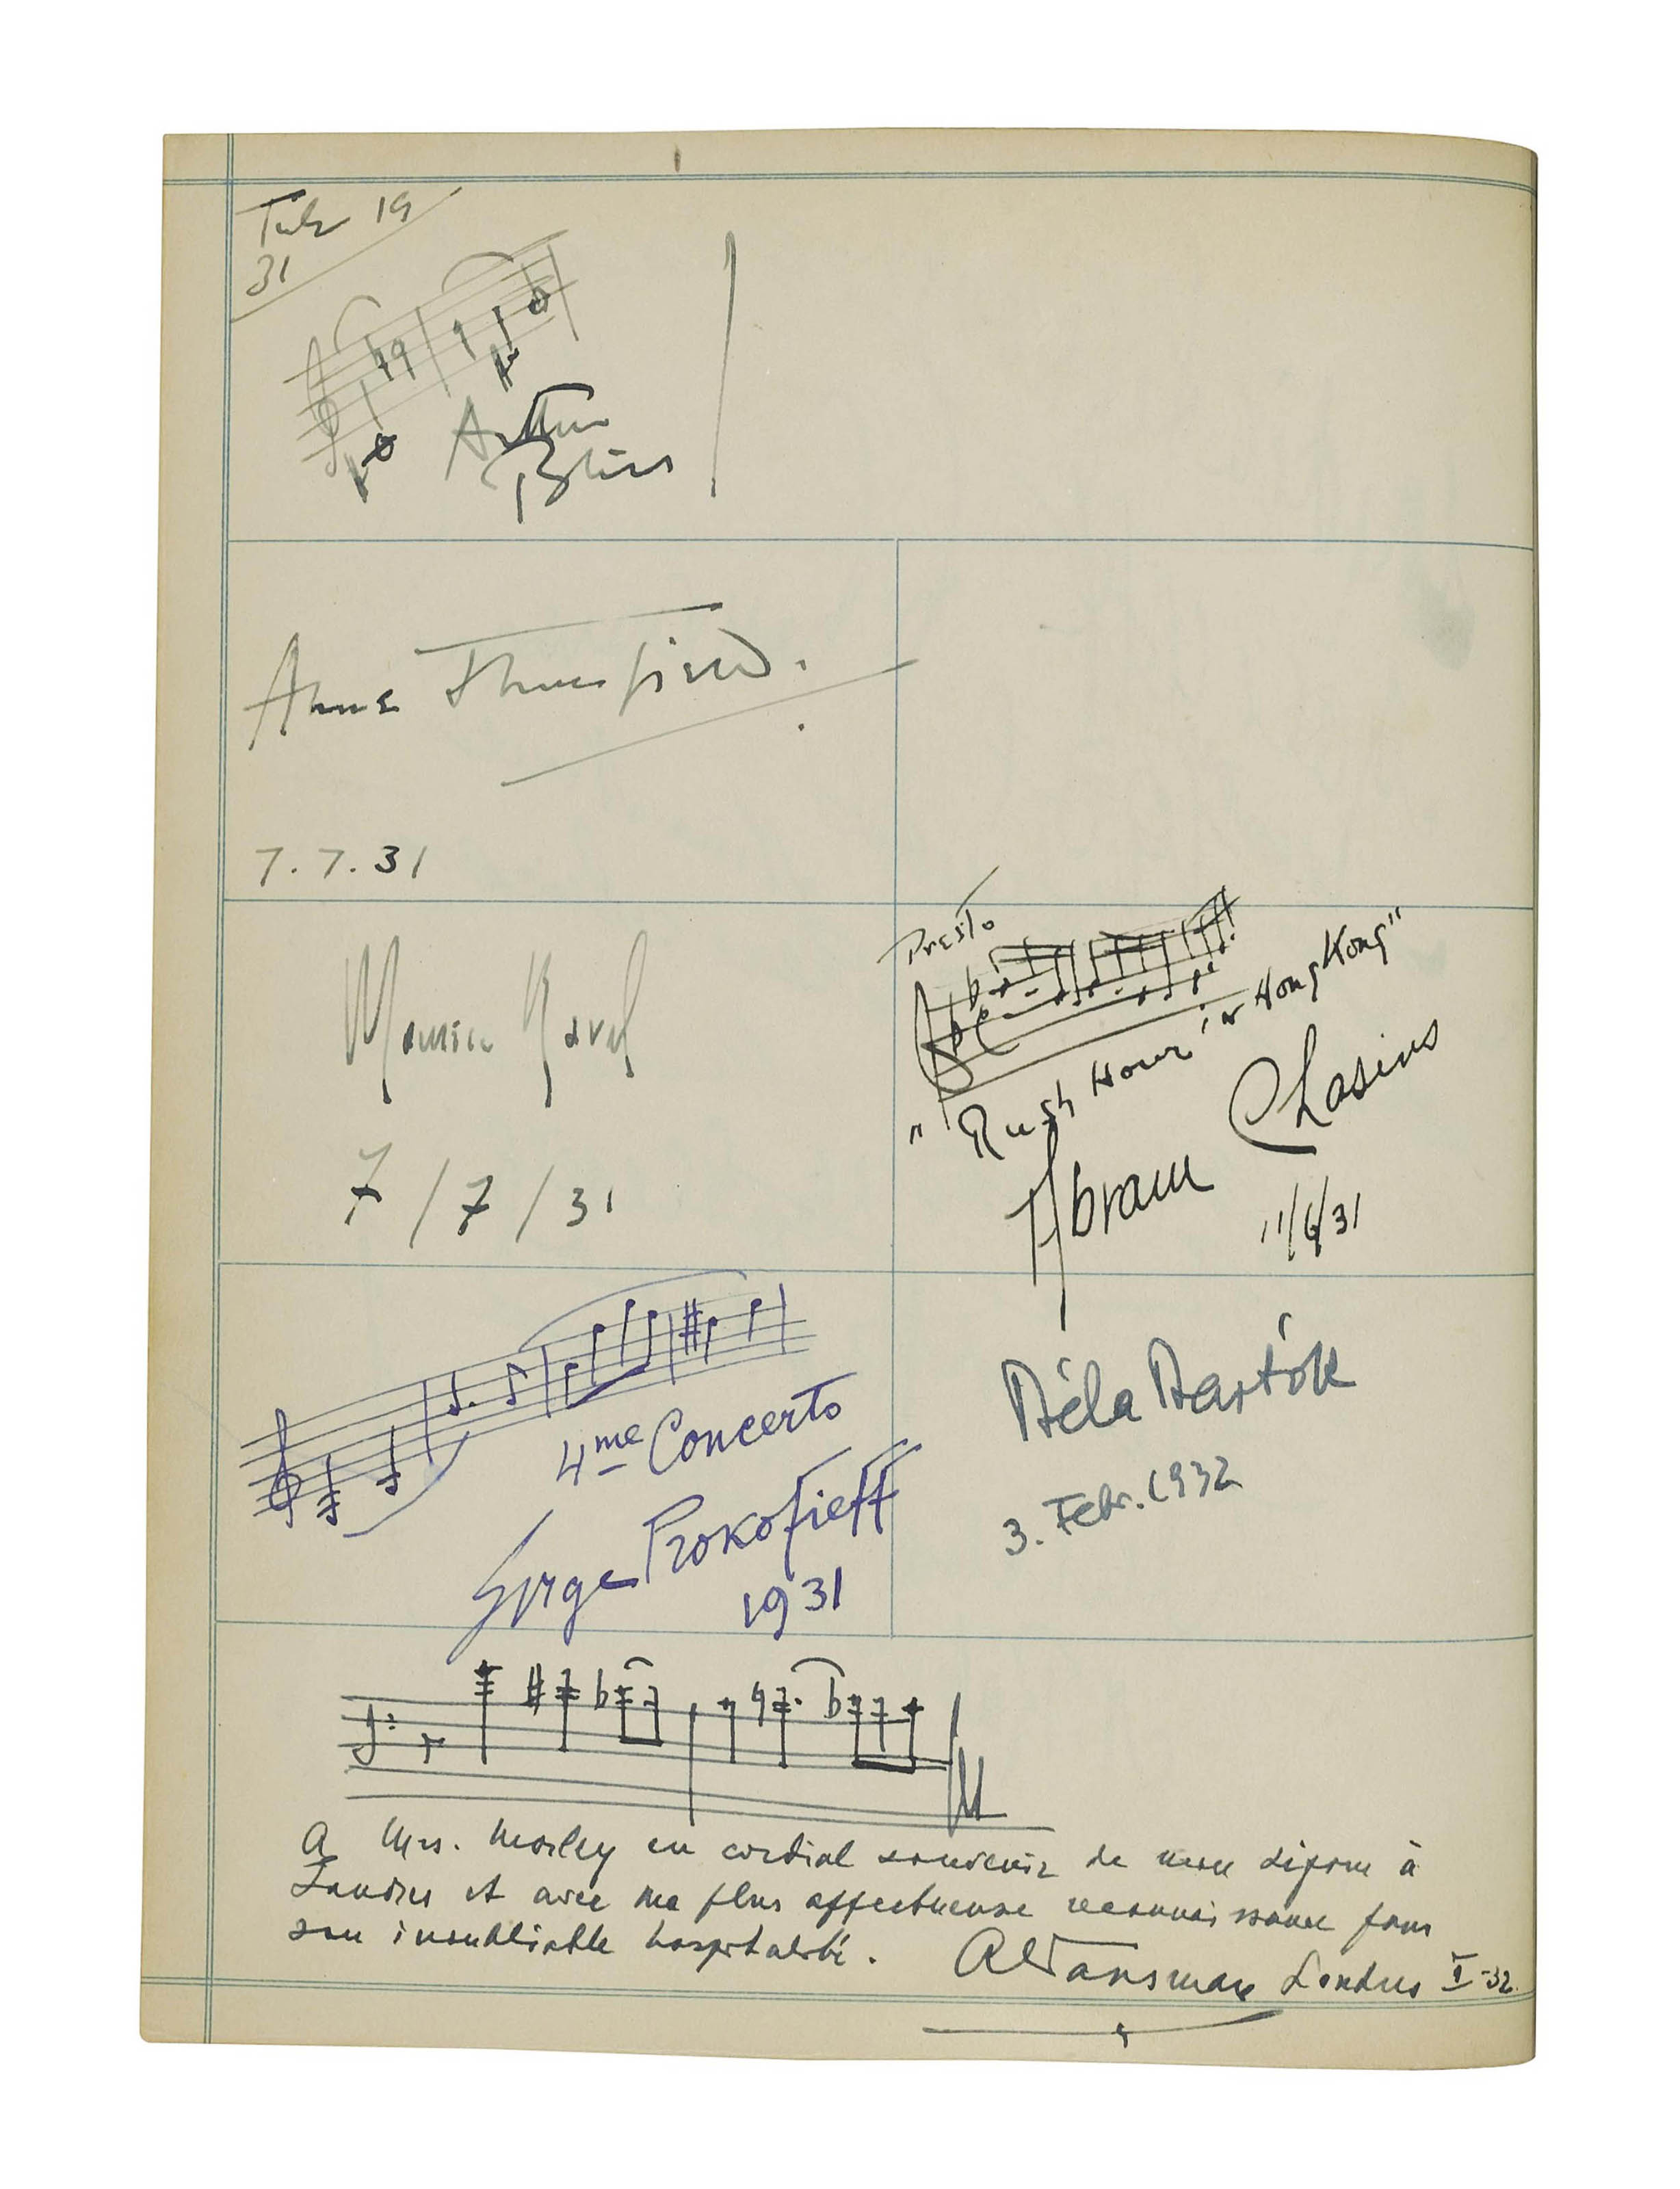 July 19
31
Arthur
Bliss
Anne Thursfield.
7.7.31
Maurice Ravel
7/7/31
Presto
"Rush Hour in Hong Kong"
Abram Chasins
11/6/31
4me Concerto
Serge Prokofieff
1931
Béla Bartók
3. Febr. 1932
A Mrs. Morley en cordial souvenir de mon séjour à
Londres et avec ma plus affectueuse reconnaissance pour
son inoubliable hospitalité. Al Tansman Londres II-32.